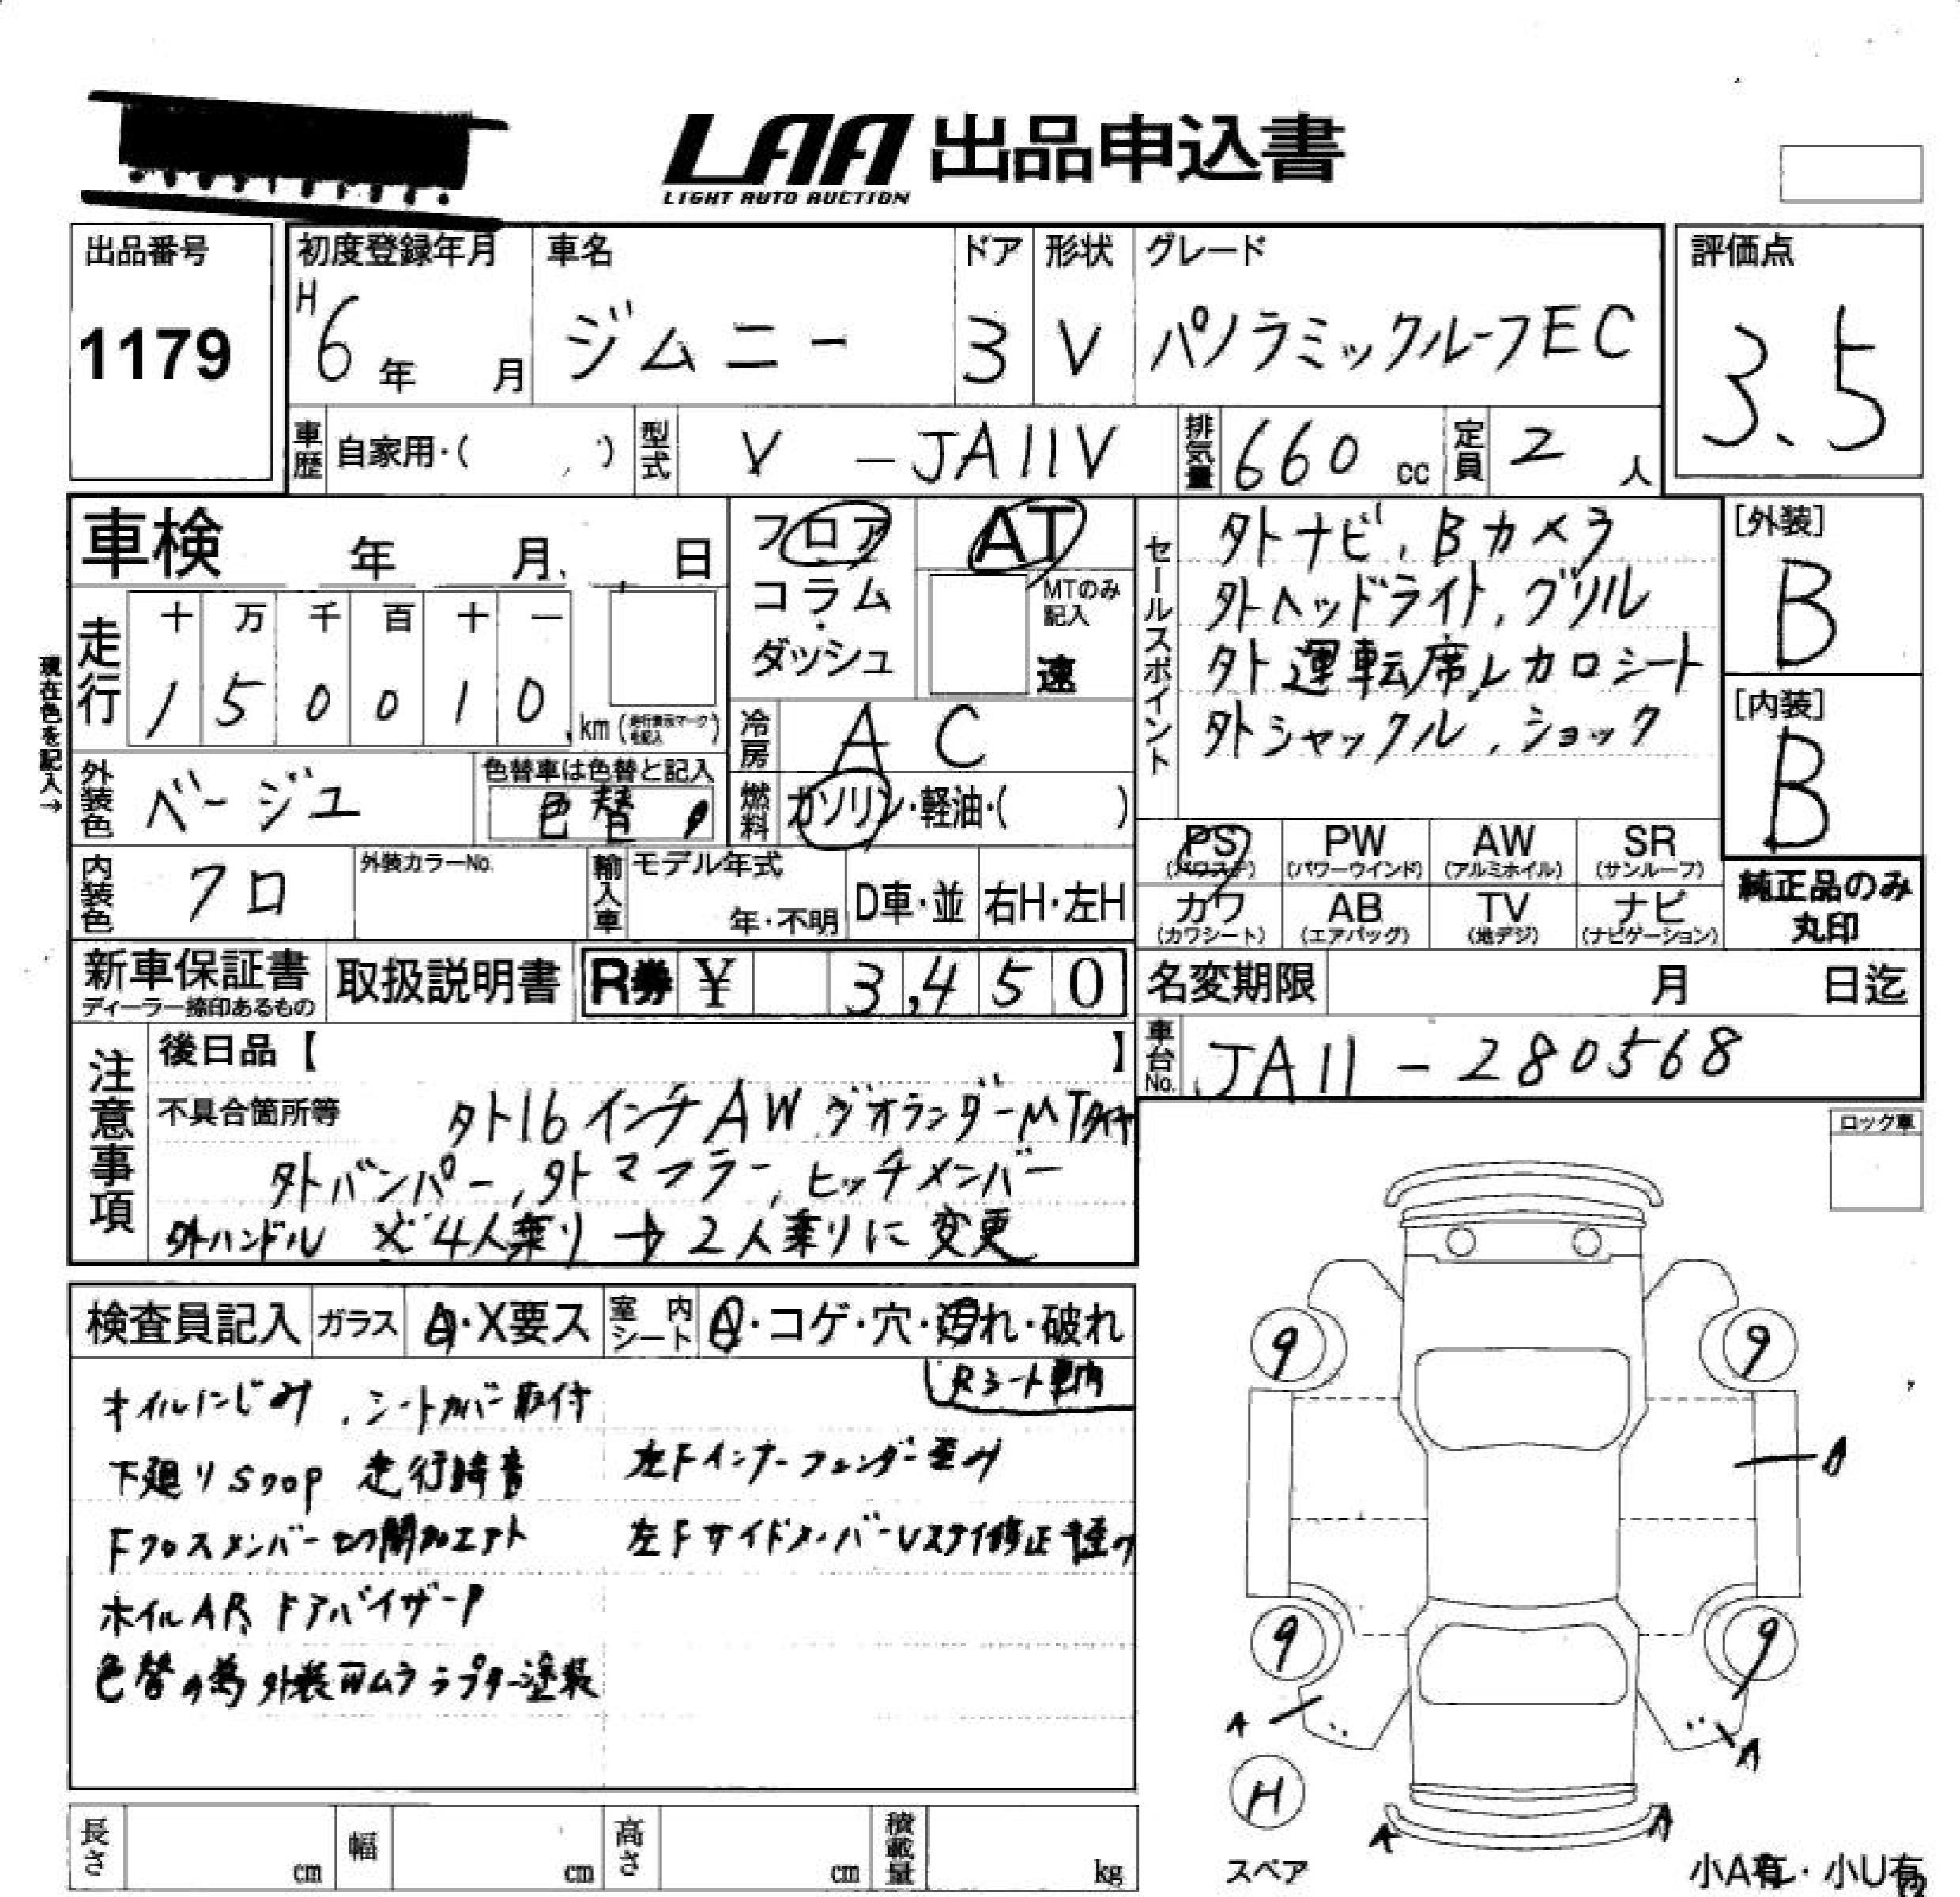 LAA 出品申込書
LIGHT AUTO AUCTION
出品番号
1179
初度登録年月
H6年 月
車名
ジムニー
ドア
3
形状
V
グレード
パノラミックルーフEC
評価点
3.5
車歴 自家用・( )
型式 V-JA11V
排気量 660 cc
定員 2 人
車検 年 月 日
フロア
コラム
・
ダッシュ
AT
MTのみ記入
速
セールスポイント
外ナビ、Bカメラ
外ヘッドライト、グリル
外運転席レカロシート
外シャックル、ショック
[外装]
B
[内装]
B
現在色を記入→
走行
十 万 千 百 十 一
1 5 0 0 1 0 km (走行表示マークを記入)
冷房 AC
燃料 ガソリン・軽油・( )
外装色 ベージュ
色替車は色替と記入
色替
内装色 クロ
外装カラーNo.
輸入車
モデル年式
年・不明
D車・並
右H・左H
PS (パワステ)
PW (パワーウインド)
AW (アルミホイル)
SR (サンルーフ)
カワ (カワシート)
AB (エアバッグ)
TV (地デジ)
ナビ (ナビゲーション)
純正品のみ
丸印
新車保証書
ディーラー捺印あるもの
取扱説明書
R券 ¥ 3,450
名変期限 月 日迄
車台No. JA11-280568
注意事項
後日品【 】
不具合箇所等
外16インチAW ジオランダーMTタイヤ
外バンパー、外マフラー、ヒッチメンバー
外ハンドル ※4人乗り→2人乗りに変更
ロック車
検査員記入
ガラス
A・X要ス
室内シート
A・コゲ・穴・汚れ・破れ
Rシート車内
オイルにじみ、シートカバー取付
下廻りS
走行
左Fインナーフェンダー歪み
Fクロスメンバー切開加工アト
左Fサイドメンバー ステイ修正
ホイルAR、ドアバイザーP
色替の為外装 ムラ ラプター塗装
9
9
A
9
9
A
A
H
スペア
A
A
小A有・小U有
長さ cm
幅 cm
高さ cm
積載量 kg